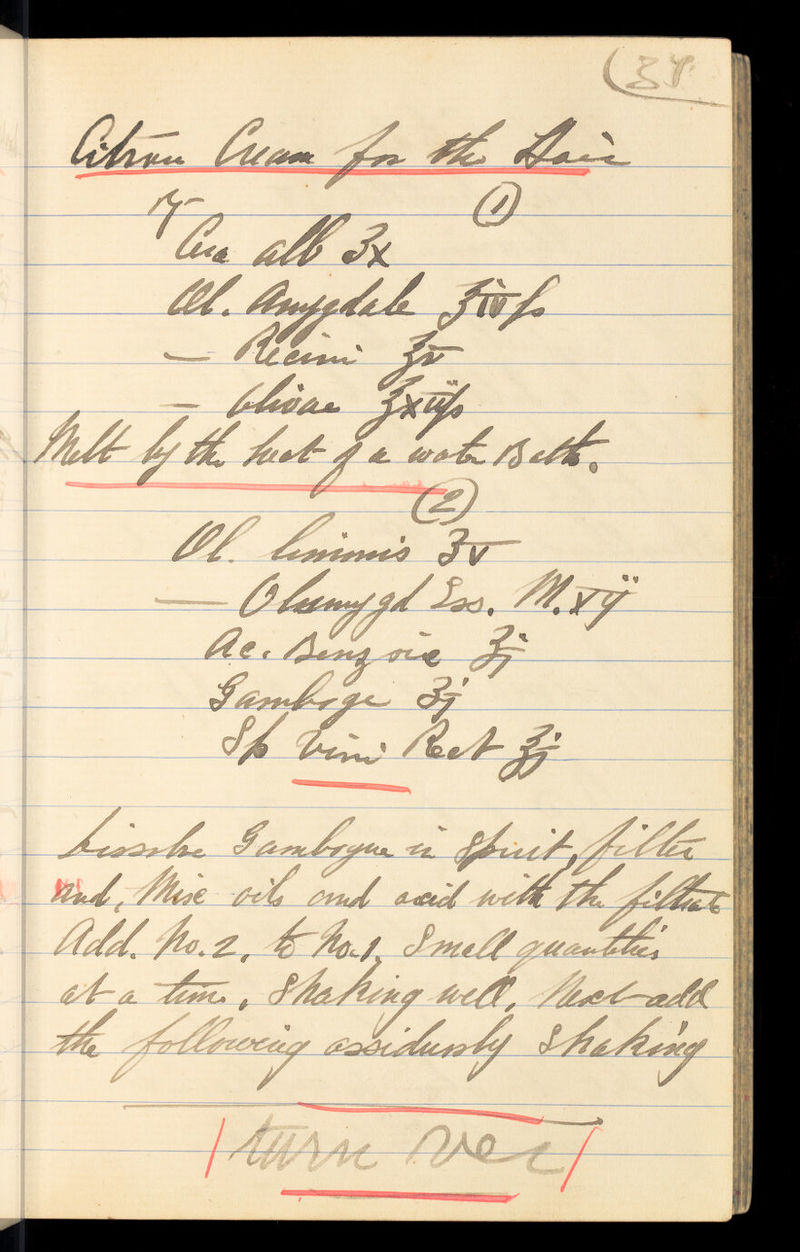 (38
Citron Cream for the Hair
℞ ①
Cera alb ʒx
Ol. Amygdale ℥ivſs
— Recini ℥v
— Olivae ℥xiiſs
Melt by the heat of a water Bath.
②
Ol. limmis ʒv
— Ol Amygd Ess. M. xij
Ac. Benzoic ℥j
Gamboge ʒj
Sp Vini Rect ℥j
Dissolve Gambogue in Spirit, filter
and, Mix oils and acid with the filtrate
Add. No. 2. to No. 1. Small quantities
at a time, Shaking well, Next add
the following assidussly Shaking
turn over